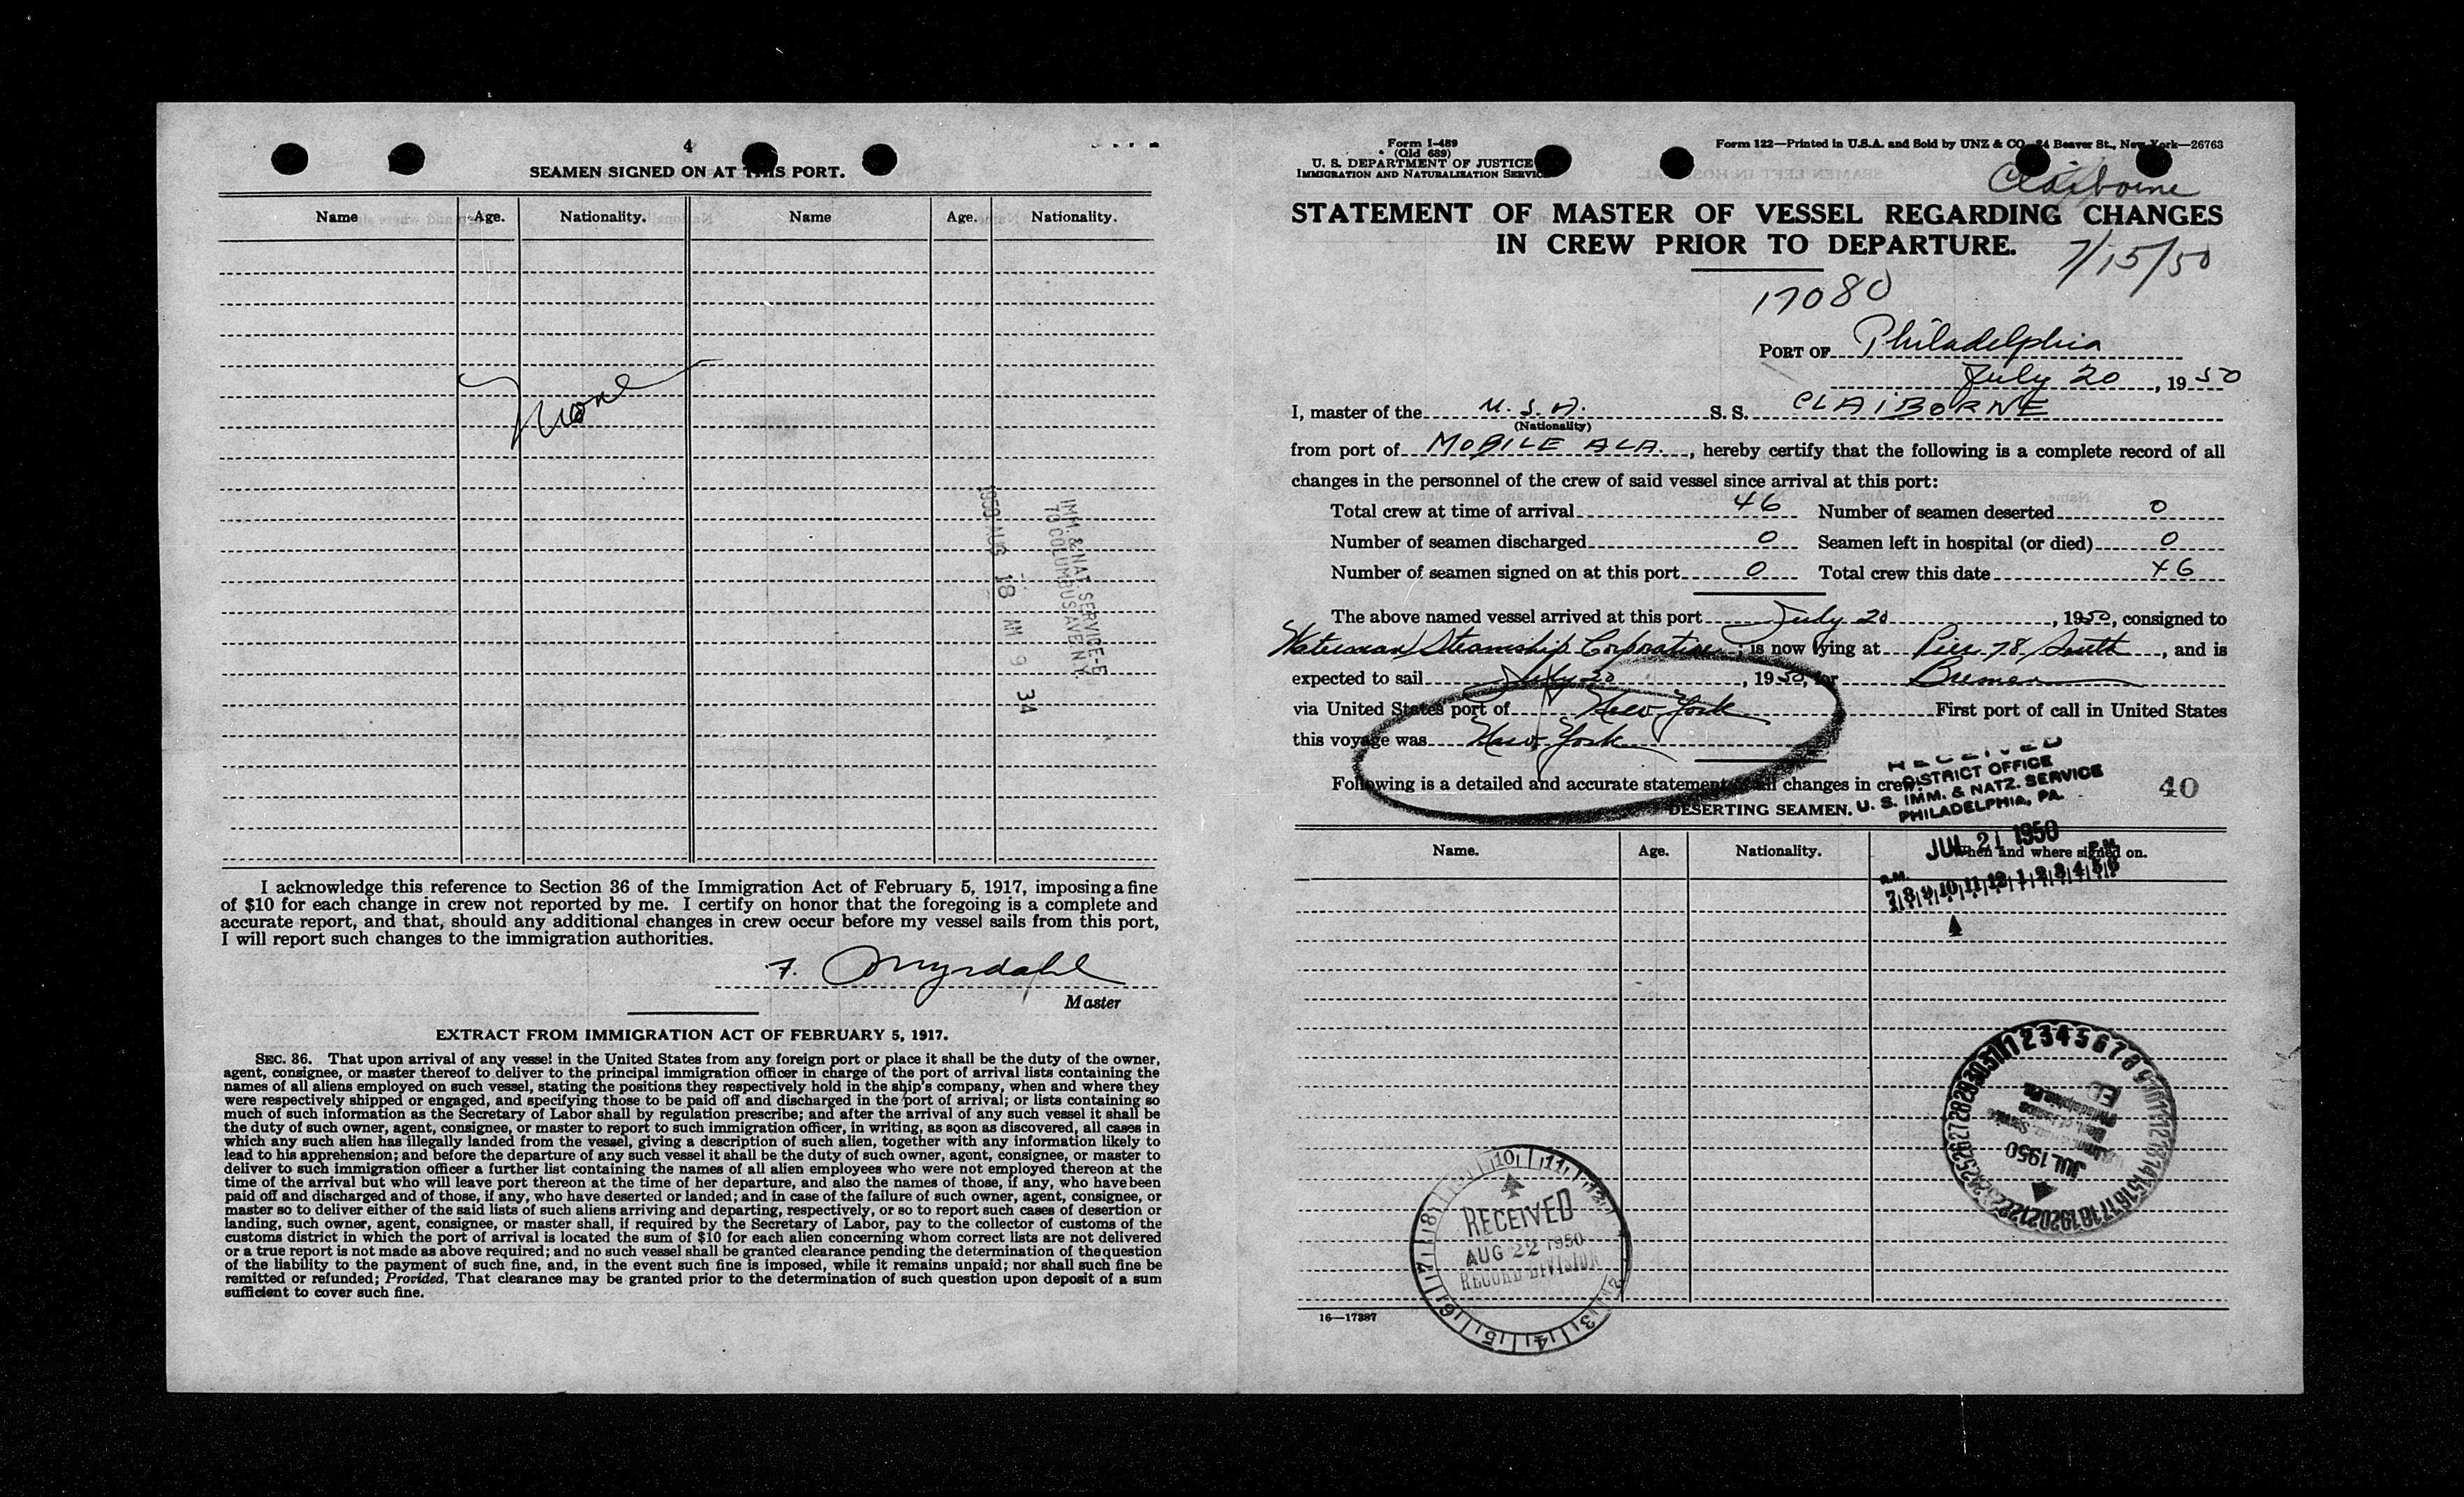 4
SEAMEN SIGNED ON AT THIS PORT.
Name Age. Nationality. Name Age. Nationality.
None
IMM & NAT SERVICE-E
70 COLUMBUS AVE N.Y.
1950 AUG 18 AM 9 34
I acknowledge this reference to Section 36 of the Immigration Act of February 5, 1917, imposing a fine
of $10 for each change in crew not reported by me. I certify on honor that the foregoing is a complete and
accurate report, and that, should any additional changes in crew occur before my vessel sails from this port,
I will report such changes to the immigration authorities.
F. Myrdahl
Master
EXTRACT FROM IMMIGRATION ACT OF FEBRUARY 5, 1917.
SEC. 36. That upon arrival of any vessel in the United States from any foreign port or place it shall be the duty of the owner,
agent, consignee, or master thereof to deliver to the principal immigration officer in charge of the port of arrival lists containing the
names of all aliens employed on such vessel, stating the positions they respectively hold in the ship's company, when and where they
were respectively shipped or engaged, and specifying those to be paid off and discharged in the port of arrival; or lists containing so
much of such information as the Secretary of Labor shall by regulation prescribe; and after the arrival of any such vessel it shall be
the duty of such owner, agent, consignee, or master to report to such immigration officer, in writing, as soon as discovered, all cases in
which any such alien has illegally landed from the vessel, giving a description of such alien, together with any information likely to
lead to his apprehension; and before the departure of any such vessel it shall be the duty of such owner, agent, consignee, or master to
deliver to such immigration officer a further list containing the names of all alien employees who were not employed thereon at the
time of the arrival but who will leave port thereon at the time of her departure, and also the names of those, if any, who have been
paid off and discharged and of those, if any, who have deserted or landed; and in case of the failure of such owner, agent, consignee, or
master so to deliver either of the said lists of such aliens arriving and departing, respectively, or so to report such cases of desertion or
landing, such owner, agent, consignee, or master shall, if required by the Secretary of Labor, pay to the collector of customs of the
customs district in which the port of arrival is located the sum of $10 for each alien concerning whom correct lists are not delivered
or a true report is not made as above required; and no such vessel shall be granted clearance pending the determination of the question
of the liability to the payment of such fine, and, in the event such fine is imposed, while it remains unpaid; nor shall such fine be
remitted or refunded; Provided, That clearance may be granted prior to the determination of such question upon deposit of a sum
sufficient to cover such fine.
Form I-489
(Old 689)
U. S. DEPARTMENT OF JUSTICE
IMMIGRATION AND NATURALIZATION SERVICE
Form 122—Printed in U.S.A. and Sold by UNZ & CO. 24 Beaver St., New York—26763
Claiborne
STATEMENT OF MASTER OF VESSEL REGARDING CHANGES
IN CREW PRIOR TO DEPARTURE.
7/15/50
17080
PORT OF Philadelphia
July 20, 1950
I, master of the U. S. A. S. S. CLAIBORNE
(Nationality)
from port of MOBILE ALA., hereby certify that the following is a complete record of all
changes in the personnel of the crew of said vessel since arrival at this port:
Total crew at time of arrival 46 Number of seamen deserted 0
Number of seamen discharged 0 Seamen left in hospital (or died) 0
Number of seamen signed on at this port 0 Total crew this date 46
The above named vessel arrived at this port July 20, 1950, consigned to
Waterman Steamship Corporation; is now lying at Pier 78 South, and is
expected to sail July 20, 1950, for Bremen
via United States port of New York First port of call in United States
this voyage was New York
Following is a detailed and accurate statement of all changes in crew:
DESERTING SEAMEN.
RECEIVED
DISTRICT OFFICE
U. S. IMM. & NATZ. SERVICE
PHILADELPHIA, PA.
40
JUL 21 1950
A.M. P.M.
7 8 9 10 11 12 1 2 3 4 5 6
Name. Age. Nationality. When and where signed on.
1 2 3 4 5 6 7 8 9 10 11 12 13 14 15 16 17 18 19 20 21 22 23 24 25 26 27 28 29 30 31
JUL 1950
Philadelphia, Pa.
RECEIVED
AUG 22 1950
RECORD DIVISION
16—17387